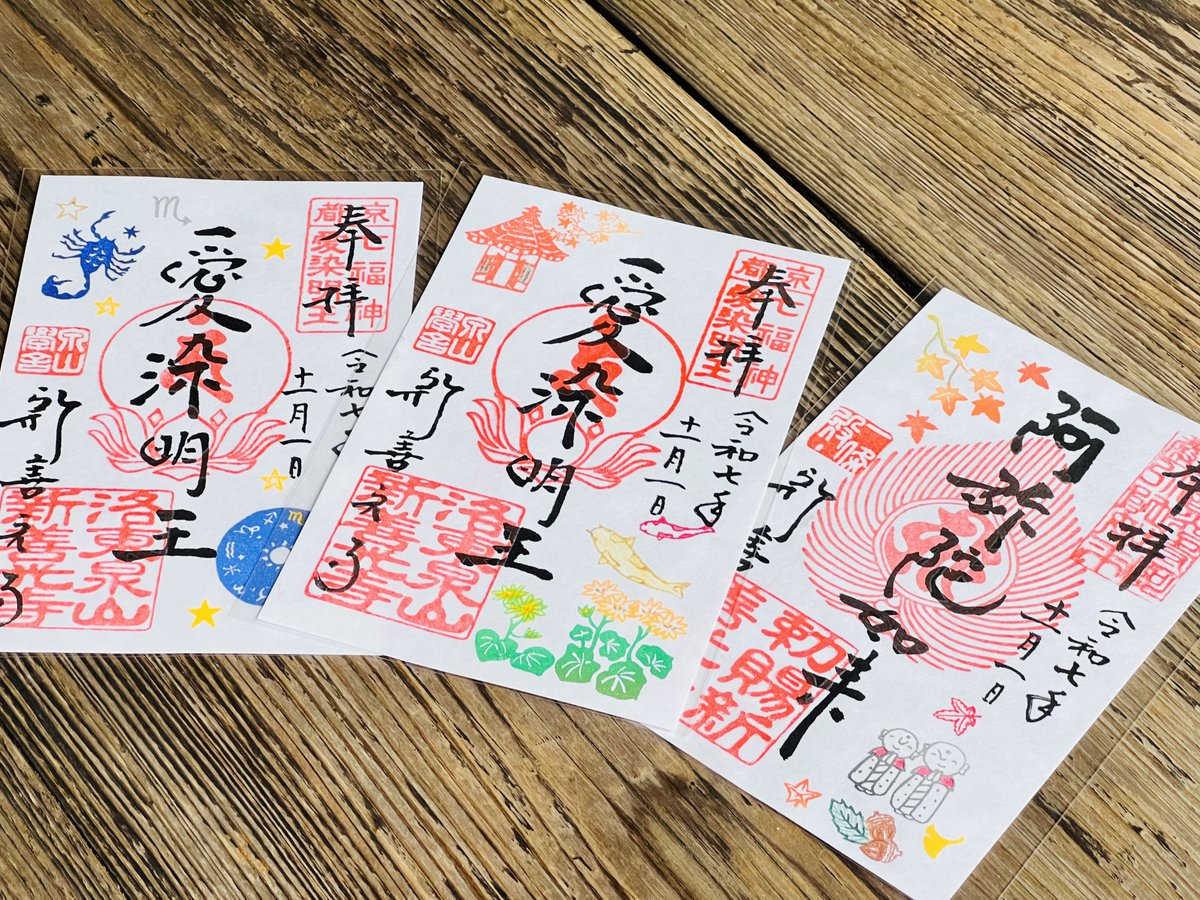 奉拝
京都
七福神
愛染明王
令和七
十一月一日
愛染明王
新善光寺
洛東泉山
新善光寺
奉拝
京都
七福神
愛染明王
令和七年
十一月一日
愛染明王
新善光寺
洛東泉山
新善光寺
奉拝
令和七年
十一月一日
阿弥陀如来
新善
勅賜新